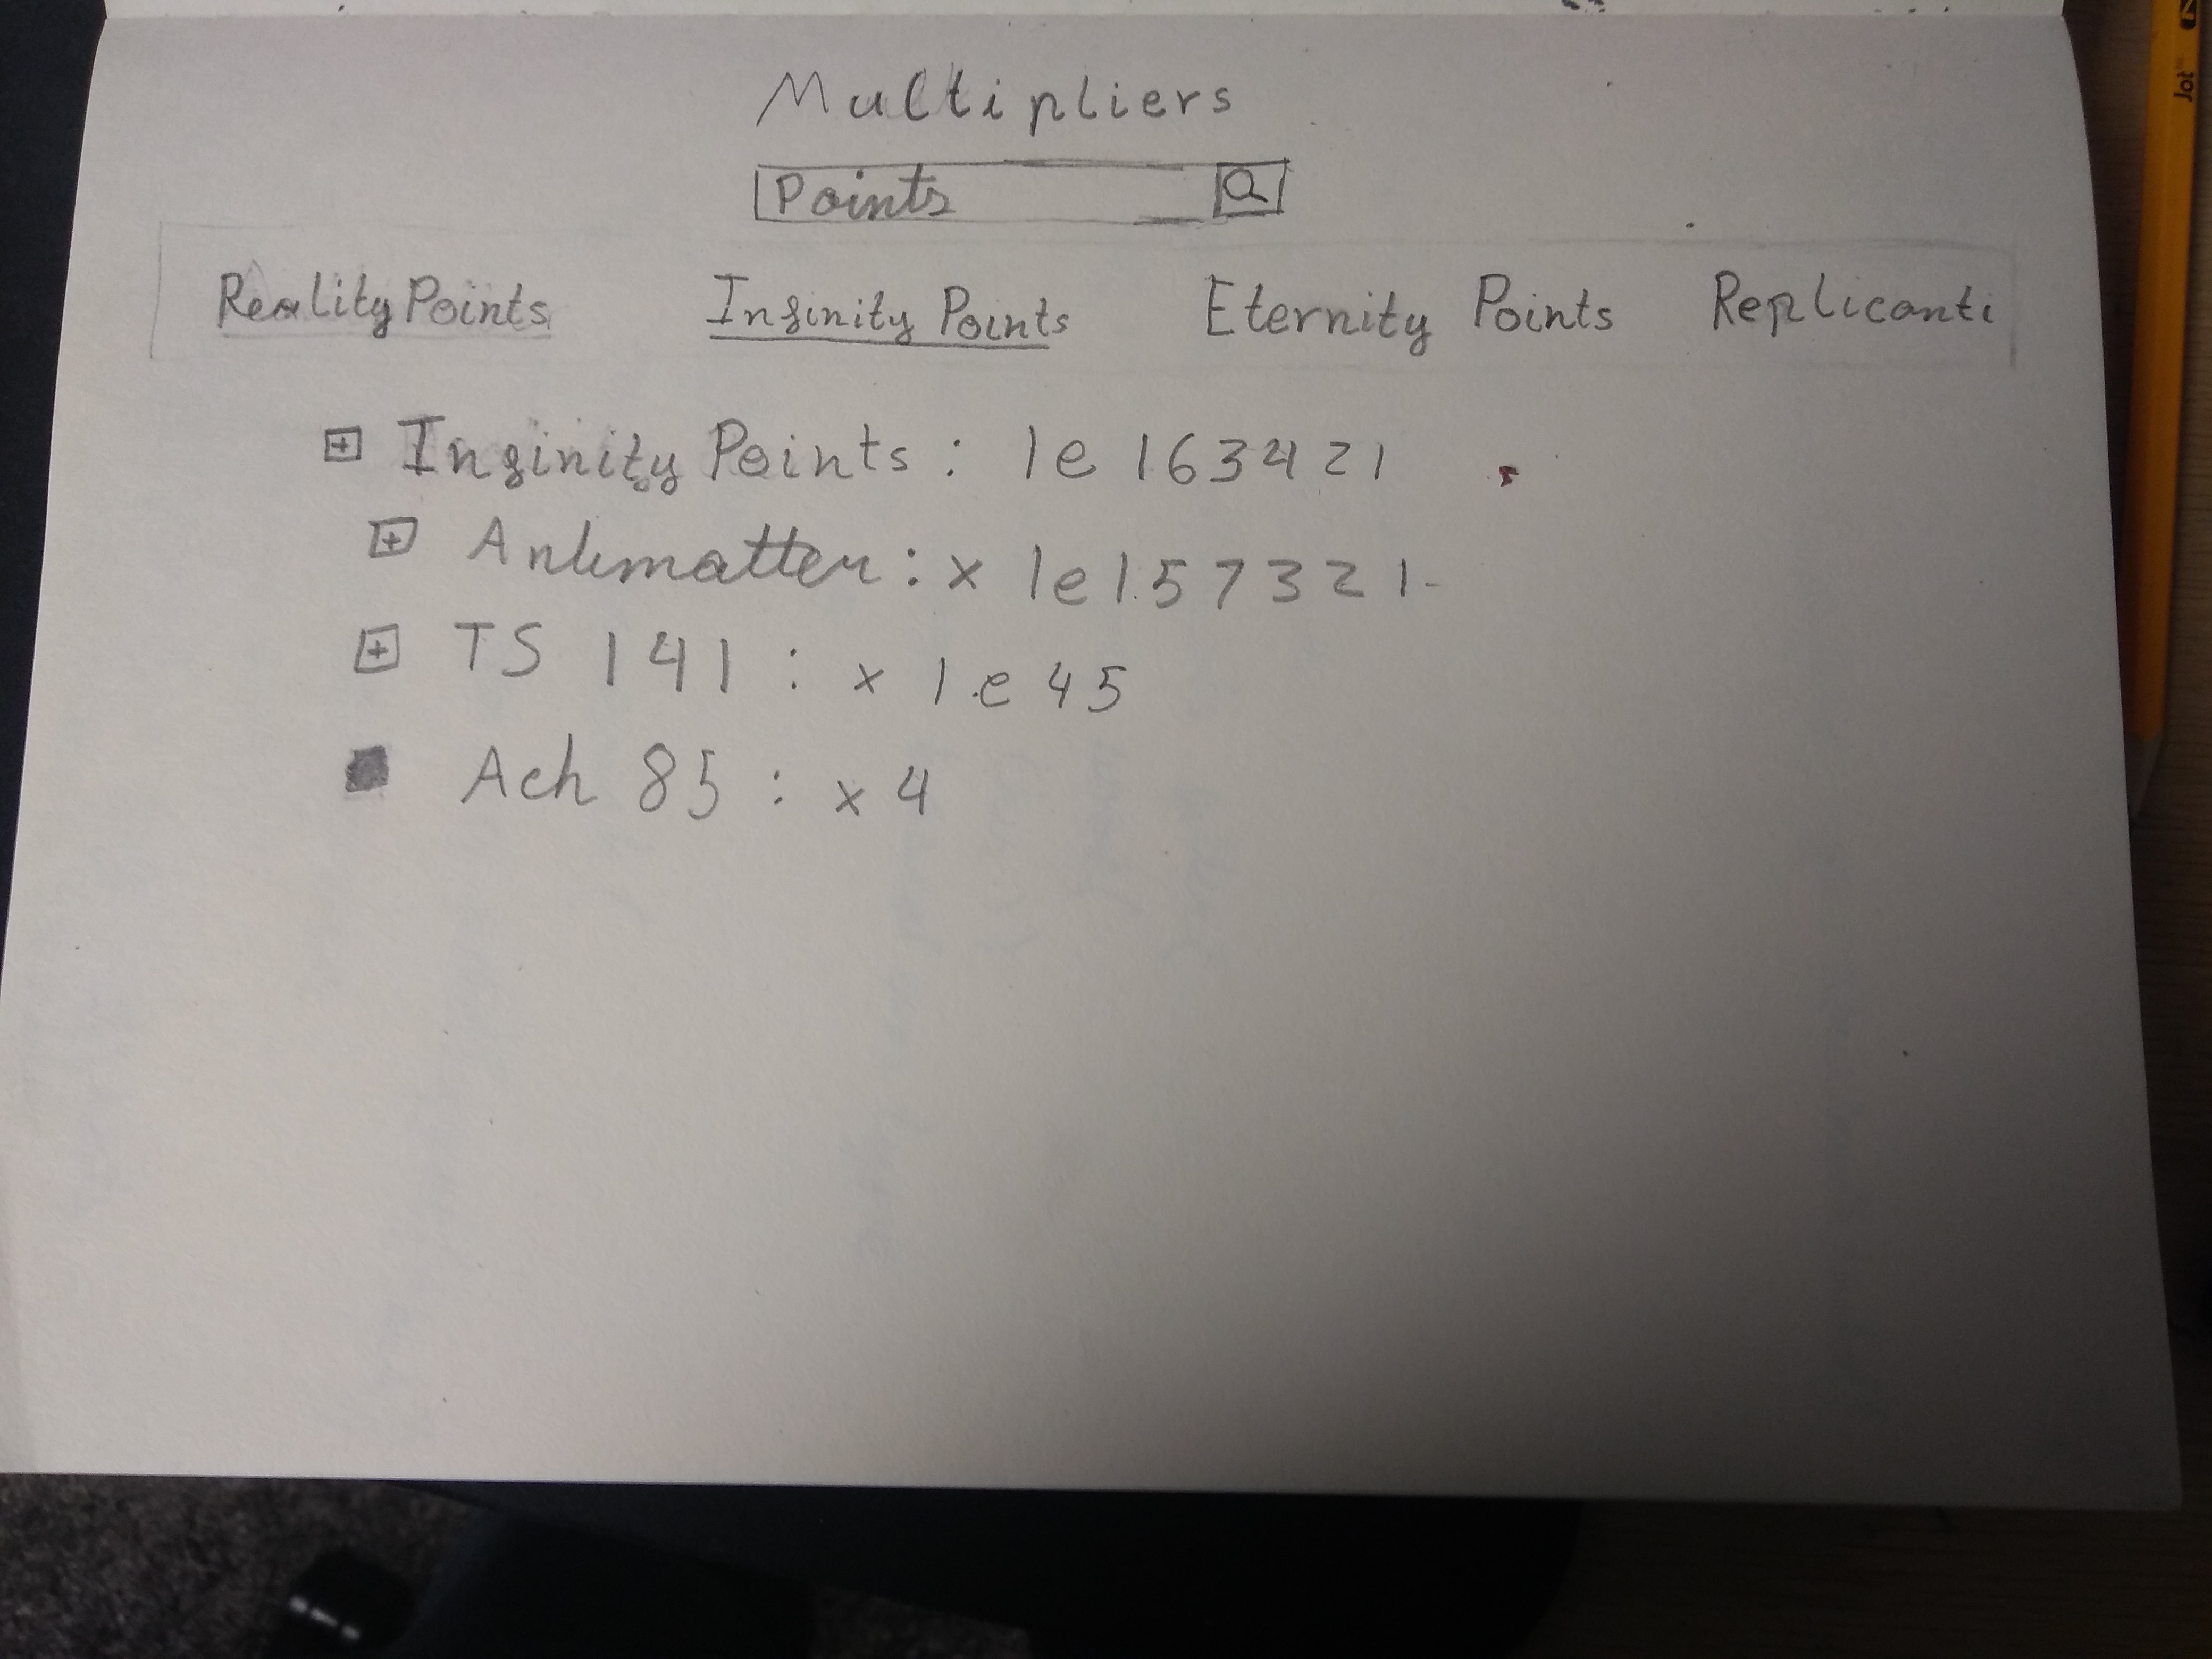 Multipliers
Points
Reality Points Infinity Points Eternity Points Replicanti
Infinity Points : 1e163421
Antimatter : x 1e157321
TS 141 : x 1e45
Ach 85 : x 4
Jot